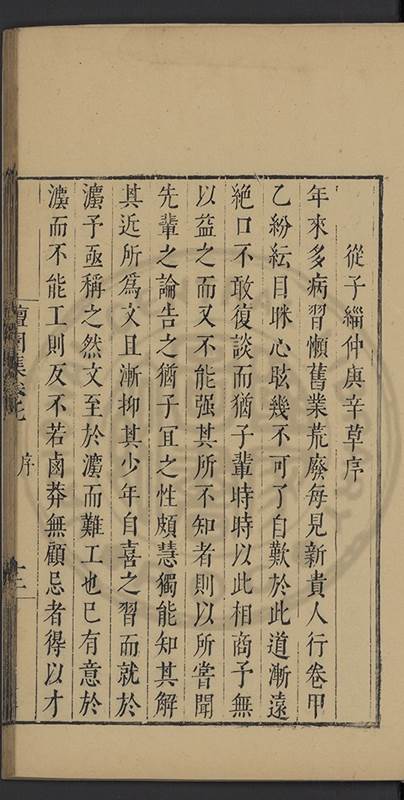 從子緇仲庚辛草序
年來多病習懶舊業荒廢每見新貴人行卷甲
乙紛紜目眯心眩幾不可了自歎於此道漸遠
絶口不敢復談而猶子輩時時以此相商予無
以益之而又不能强其所不知者則以所嘗聞
先輩之論告之猶子宜之性頗慧獨能知其解
其近所爲文且漸抑其少年自喜之習而就於
濃予亟稱之然文至於濃而難工也已有意於
濃而不能工則反不若鹵莽無顧忌者得以才
檀園集卷七
序
十二